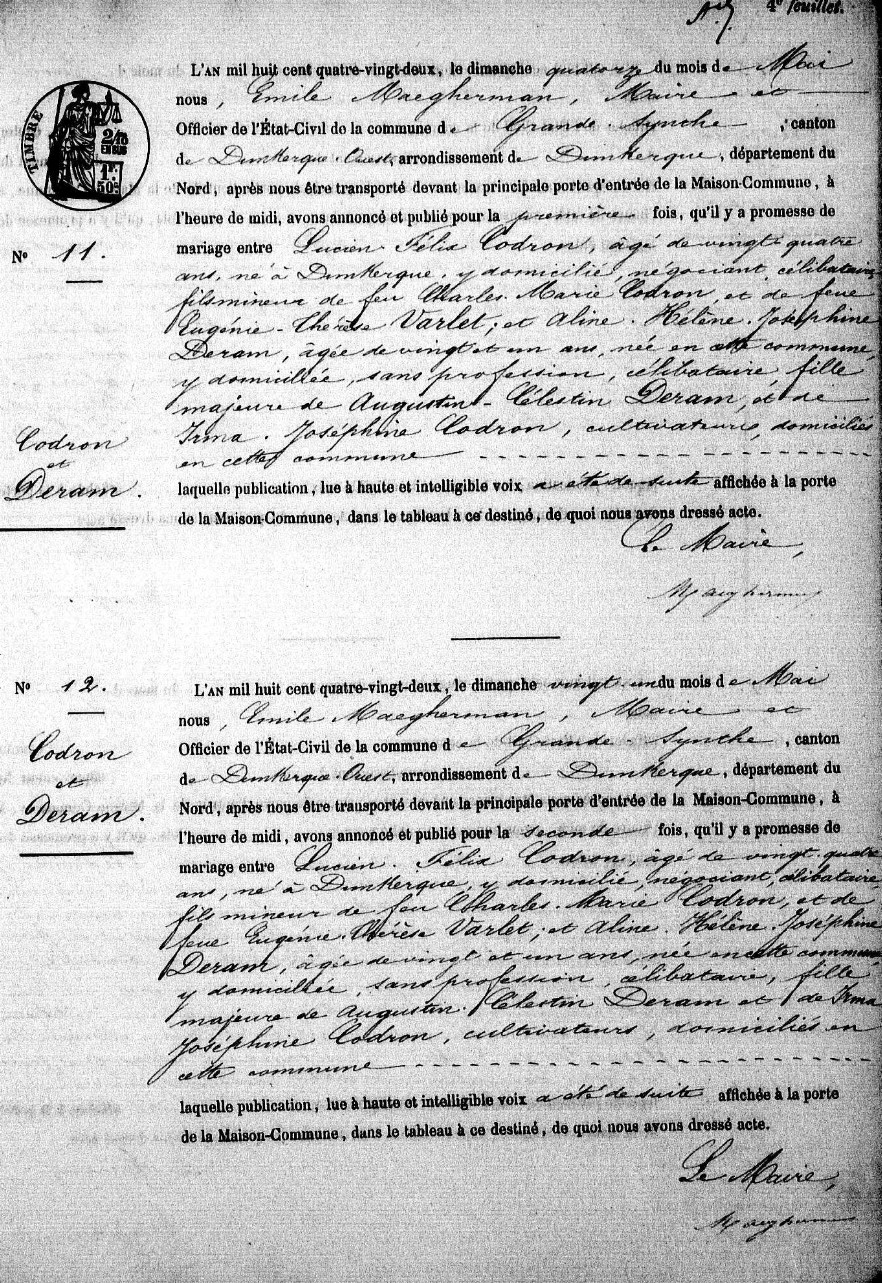 4e feuillet.
L'AN mil huit cent quatre-vingt-deux, le dimanche quatorze du mois de Mai
nous, Emile Maegherman, Maire et
Officier de l'État-Civil de la commune de Grande-Synthe, canton
de Dunkerque-Ouest, arrondissement de Dunkerque, département du
Nord, après nous être transporté devant la principale porte d'entrée de la Maison-Commune, à
l'heure de midi, avons annoncé et publié pour la première fois, qu'il y a promesse de
mariage entre Lucien-Félix Codron, âgé de vingt-quatre
ans, né à Dunkerque, y domicilié, négociant, célibataire,
fils mineur de feu Charles-Marie Codron, et de feue
Eugénie-Thérèse Varlet; et Aline-Hélène-Joséphine
Deram, âgée de vingt et un ans, née en cette commune,
y domiciliée, sans profession, célibataire, fille
majeure de Augustin-Célestin Deram, et de
Irma-Joséphine Codron, cultivateurs, domiciliés
en cette commune
laquelle publication, lue à haute et intelligible voix a été de suite affichée à la porte
de la Maison-Commune, dans le tableau à ce destiné, de quoi nous avons dressé acte.
Le Maire,
Maegherman
TIMBRE
2/10
EN SUS
1F.
50c
No 11.
Codron
et
Deram.
No 12.
Codron
et
Deram.
L'AN mil huit cent quatre-vingt-deux, le dimanche vingt-un du mois de Mai
nous, Emile Maegherman, Maire et
Officier de l'État-Civil de la commune de Grande-Synthe, canton
de Dunkerque-Ouest, arrondissement de Dunkerque, département du
Nord, après nous être transporté devant la principale porte d'entrée de la Maison-Commune, à
l'heure de midi, avons annoncé et publié pour la seconde fois, qu'il y a promesse de
mariage entre Lucien-Félix Codron, âgé de vingt-quatre
ans, né à Dunkerque, y domicilié, négociant, célibataire,
fils mineur de feu Charles-Marie Codron, et de
feue Eugénie-Thérèse Varlet; et Aline-Hélène-Joséphine
Deram, âgée de vingt et un ans, née en cette commune
y domiciliée, sans profession, célibataire, fille
majeure de Augustin-Célestin Deram et de Irma
Joséphine Codron, cultivateurs, domiciliés en
cette commune
laquelle publication, lue à haute et intelligible voix a été de suite affichée à la porte
de la Maison-Commune, dans le tableau à ce destiné, de quoi nous avons dressé acte.
Le Maire,
Maegherman